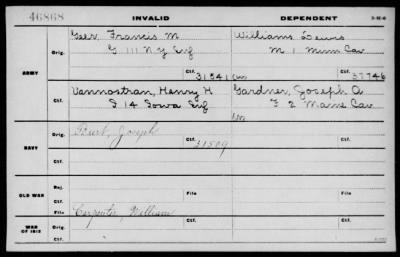 46868
INVALID
DEPENDENT
3-2140
ARMY
Orig.
Geer, Francis M
G 111 N.Y. Inf
31541
Williams Lewis
M 1 Minn Cav
37746
Ctf.
Vannostran, Henry H
I 14 Iowa Inf
Gardner, Joseph A
F 2 Maine Cav
NAVY
Orig.
Burt, Joseph
Ctf.
31509
Orig.
Ctf.
OLD WAR
Rej.
Ctf.
File
File
WAR OF 1812
File
Carpenter, William
Orig.
Ctf.
Ctf.